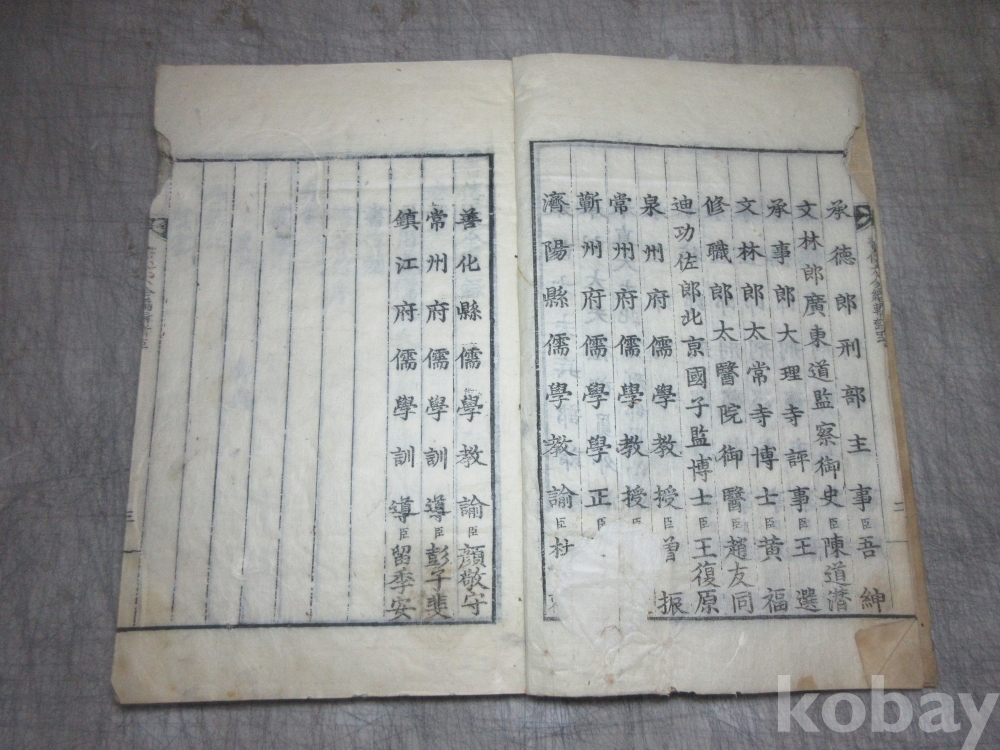 承德郎刑部主事臣吾紳
文林郎廣東道監察御史臣陳道潛
承事郎大理寺評事臣王選
文林郎太常寺博士臣黃福
修職郎太醫院御醫臣趙友同
迪功佐郎北京國子監博士臣王復原
泉州府儒學教授臣曾振
常州府儒學教授
蘄州府儒學學正臣
濟陽縣儒學教諭臣杜
善化縣儒學教諭臣顏敬守
常州府儒學訓導臣彭子斐
鎮江府儒學訓導臣留季安
二
三
kobay